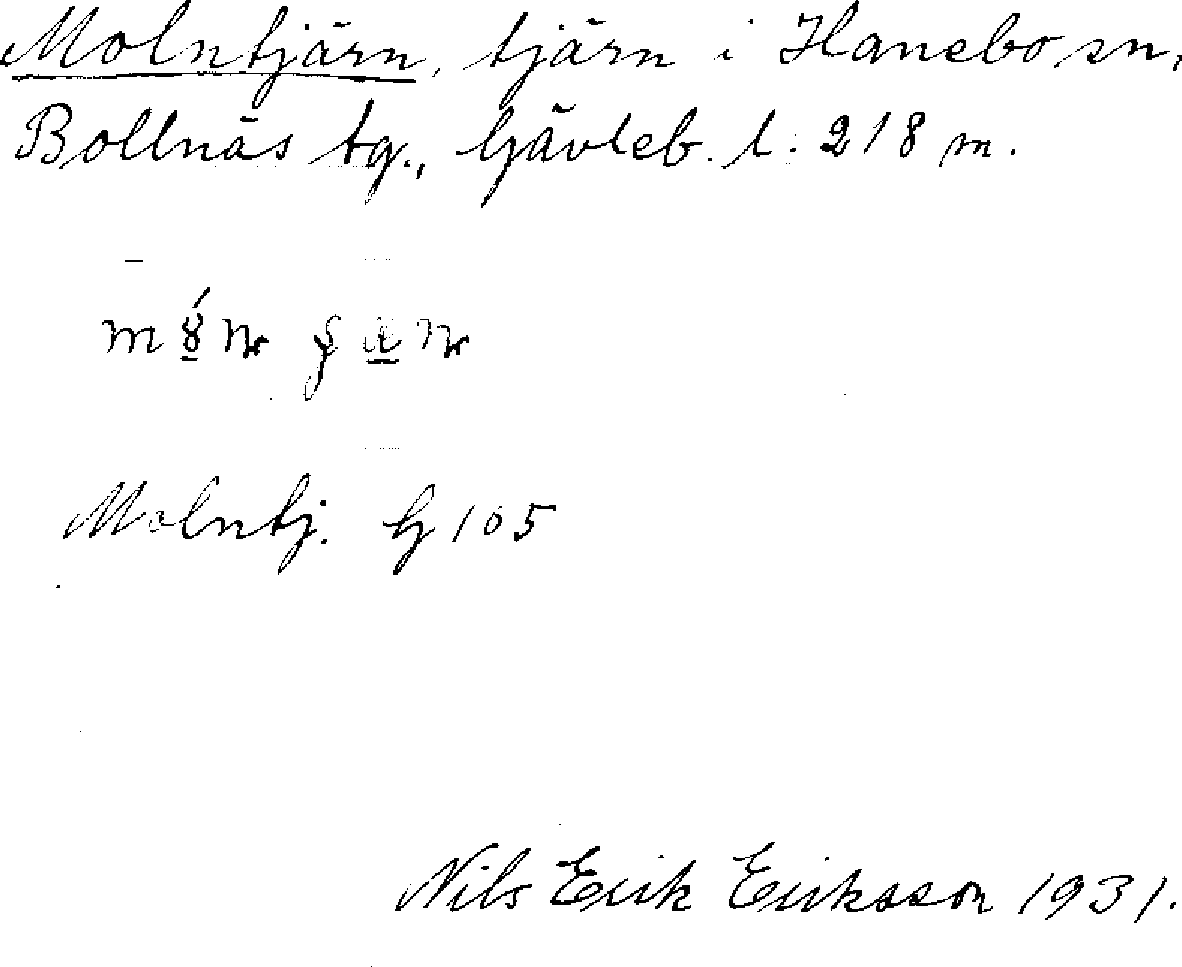 Molntjärn, tjärn i Hanebo sn,
Bollnäs tg., Gävleb. l. 218 m.
Molntj. G 105
Nils Erik Eriksson 1931.